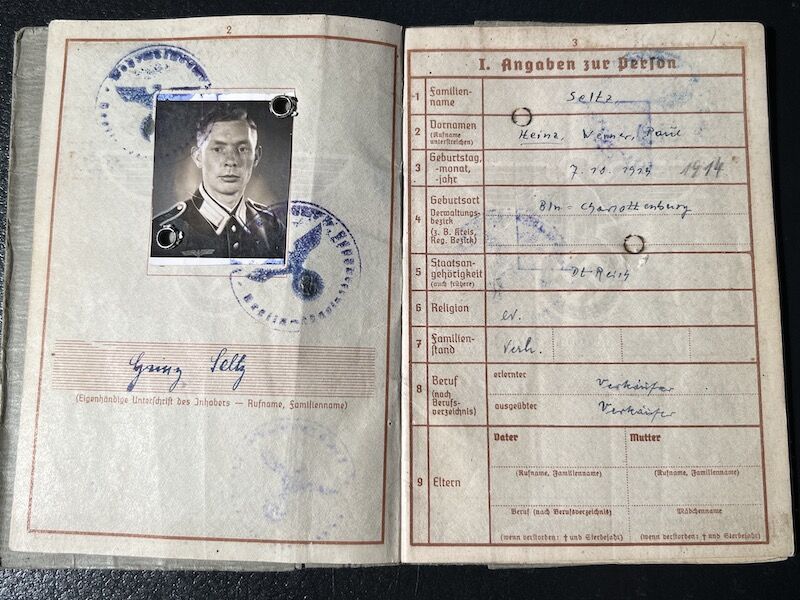 2
Heinz Seltz
(Eigenhändige Unterschrift des Inhabers — Rufname, Familienname)
3
I. Angaben zur Person
1 Familien-
name
Seltz
2 Vornamen
(Rufname
unterstreichen)
Heinz, Werner, Paul
3 Geburtstag,
-monat,
-jahr
7. 10. 1914 1914
4 Geburtsort
Verwaltungs-
bezirk
(z. B. Kreis,
Reg. Bezirk)
Bln-Charlottenburg
5 Staatsan-
gehörigkeit
(auch frühere)
Dt Reich
6 Religion
ev.
7 Familien-
stand
Verh.
8 Beruf
(nach
Berufs-
verzeichnis)
erlernter
Verkäufer
ausgeübter
Verkäufer
9 Eltern
Vater Mutter
(Rufname, Familienname) (Rufname, Familienname)
Beruf (nach Berufsverzeichnis) Mädchenname
(wenn verstorben: † und Sterbejahr) (wenn verstorben: † und Sterbejahr)